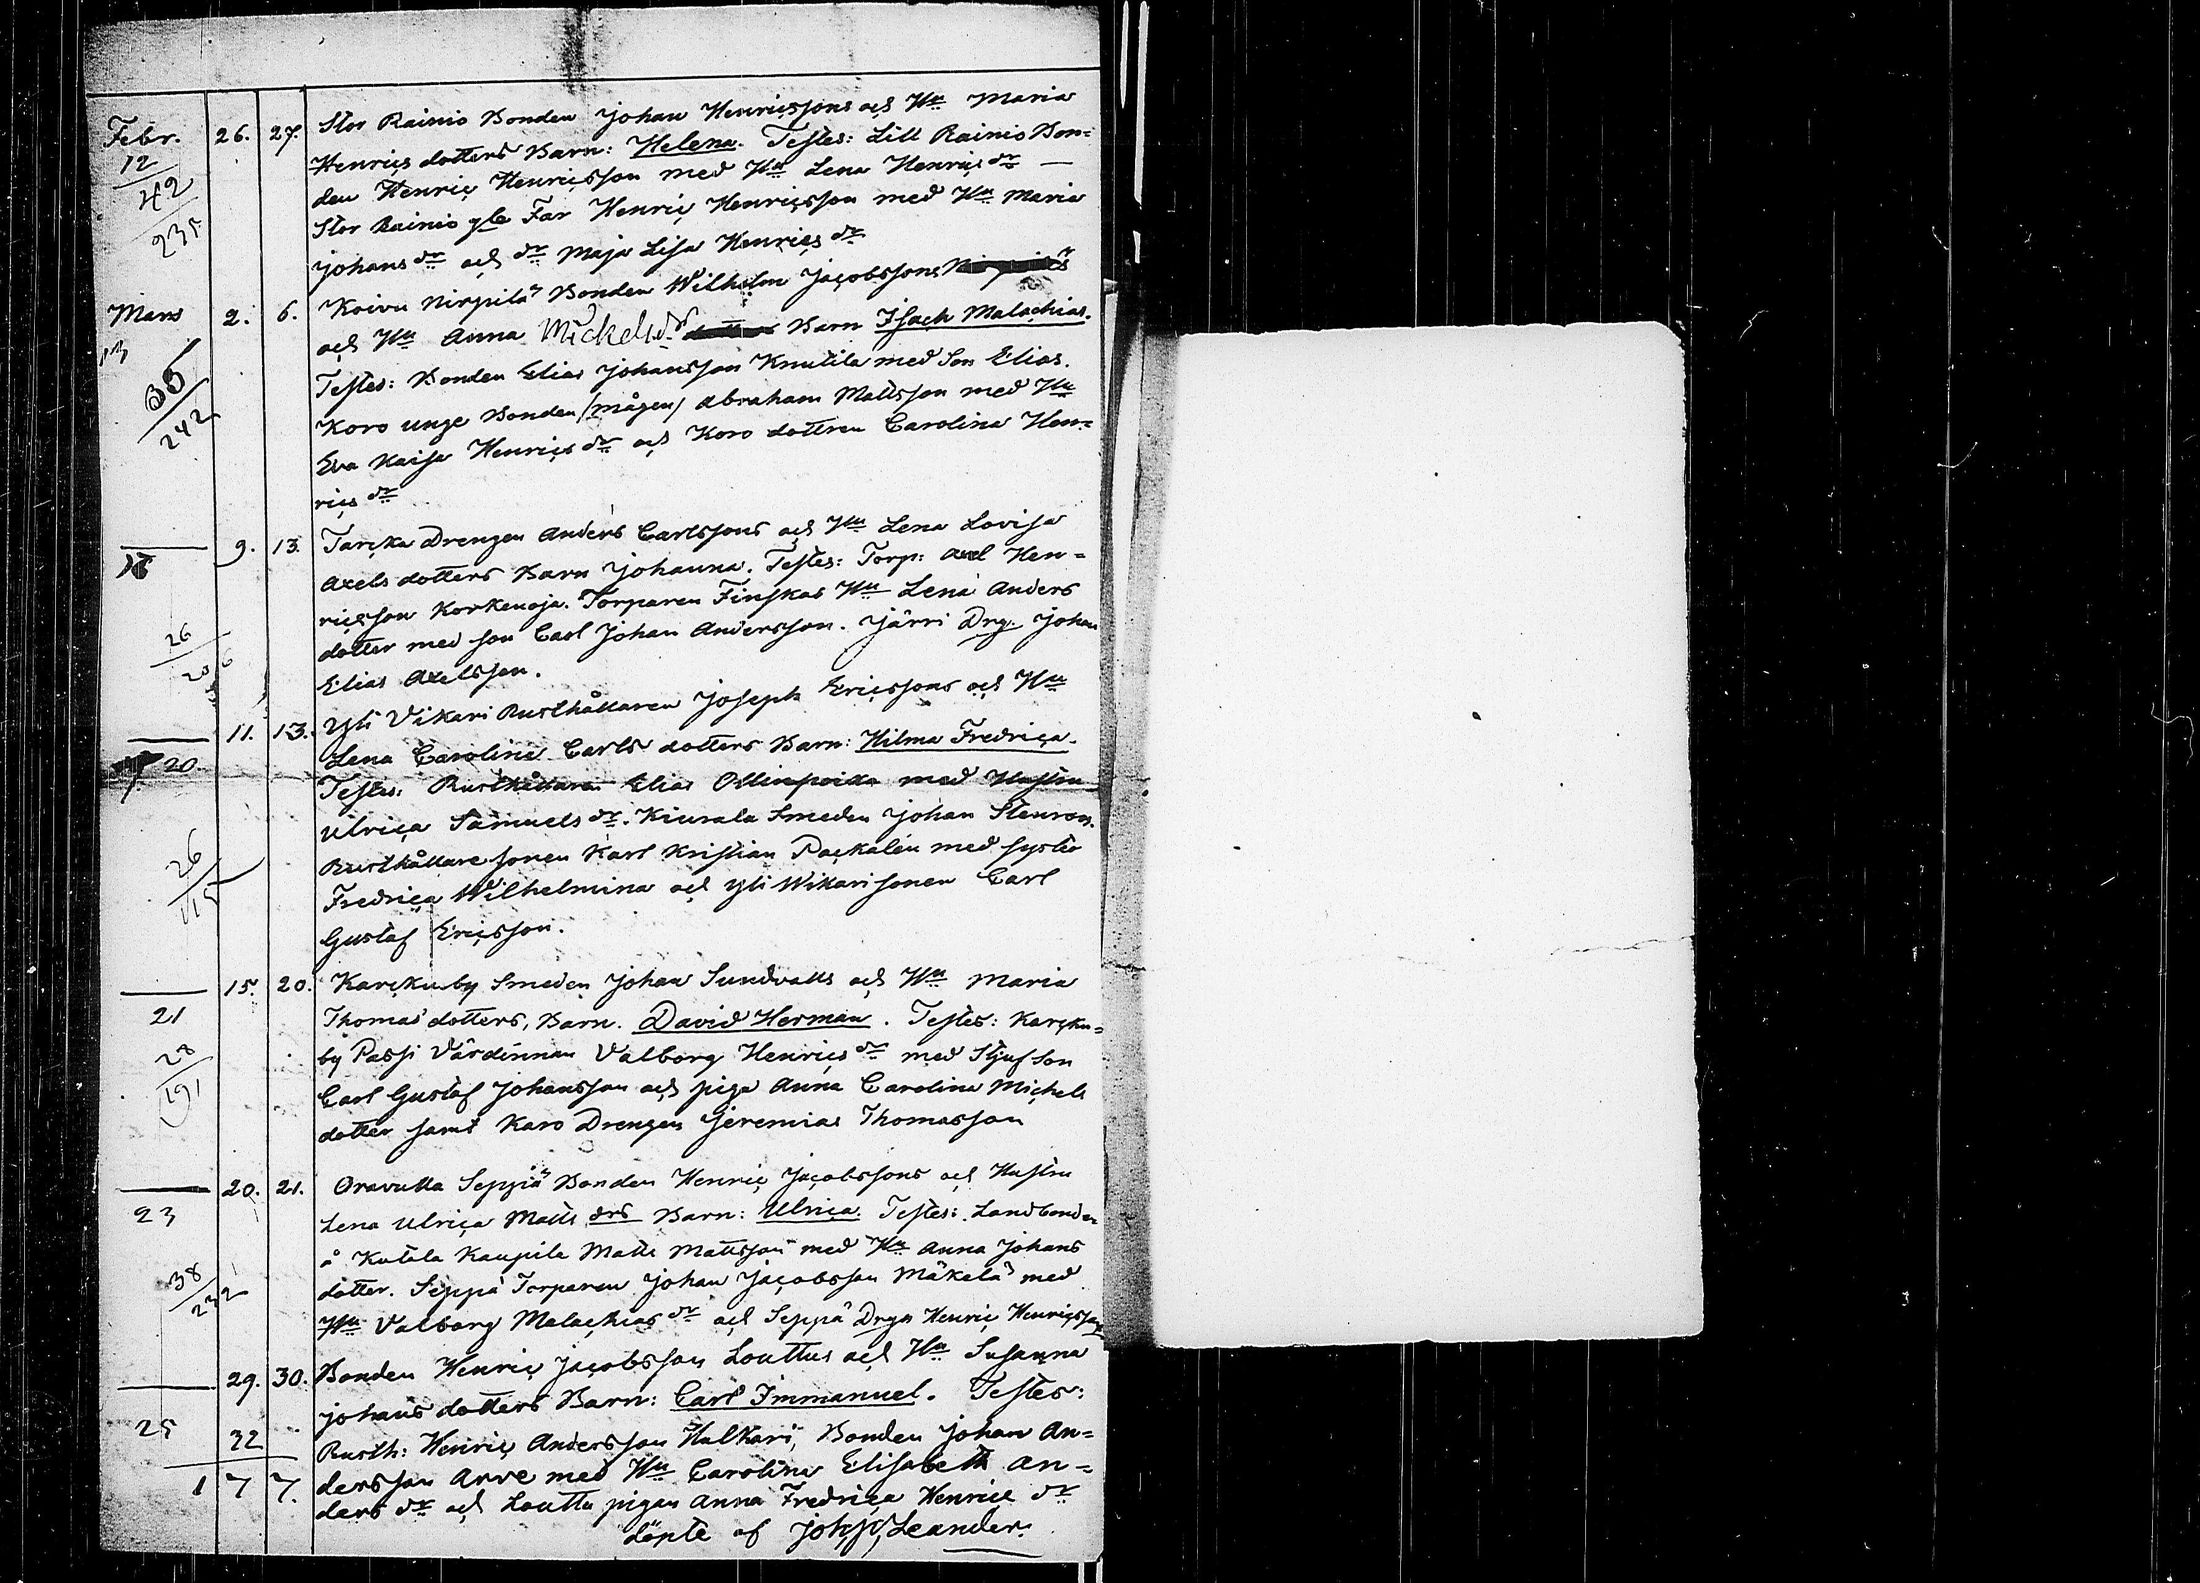 Febr. 26. 27. Stor Rainio Bonden Johan Henricssons och Hu Maria
12 Henrics dotters Barn: Helena. Testes: Lill Rainio Bon=
42 den Henric Henricsson med Hu Lena Henrics dr —
235 Stor Rainio gle Far Henric Henricsson med Hu Maria
Johans dr och dr Maja Lisa Henrics dr
Mars 2. 6. Koivu Nirpilä Bonden Wilhelm Jacobssons
13 och Hu Anna Mickelsd. Barn Isach Malachias.
36 Testes: Bonden Elias Johansson Knutila med Son Elias.
242 Koro unge Bonden /mågen/ Abraham Mattsson med Hu
Eva Kaisa Henrics dr och Koro dottren Carolina Hen=
rics dr
— 9. 13. Tarcka Drengen Anders Carlssons och Hu Lena Lovisa
Axels dotters Barn Johanna. Testes: Torp: Axel Hen=
ricsson Korkenoja. Torparen Finskas Hu Lena Anders
26 dotter med son Carl Johan Andersson. Järri Drg. Johan
206 Elias Axelsson.
— 11. 13. Yli Vikari Rusthållaren Joseph Ericssons och Hu
20. Lena Carolina Carls dotters Barn: Hilma Fredrica.
Testes: Rusthållaren Elias Ollinpoika med Hustru
Ulrica Samuels dr. Kiurala Smeden Johan Stenroos.
26 Rusthållare sonen Karl Kristian Packalén med syster
115 Fredrica Wilhelmina och Yli Wikari sonen Carl
Gustaf Ericsson.
— 15. 20. Karckuby Smeden Johan Sundvalls och Hu Maria
21 Thomas dotters, Barn. David Herman. Testes: Karcku=
28 by Passi Värdinnan Valborg Henrics dr med Stjufson
191 Carl Gustaf Johansson och piga Anna Carolina Michels
dotter samt Karo Drengen Jeremias Thomasson
— 20. 21. Oravulla Seppä Bonden Henric Jacobssons och Hustru
23 Lena Ulrica Matts drs Barn: Ulrica. Testes: Landbonden
å Kutala Kaupila Matts Mattsson med Hu Anna Johans
38 dotter. Seppä Torparen Johan Jacobsson Mäkelä med
232 Hu Valborg Malachias dr och Seppä Drgn Henric Henricsson
— 29. 30. Bonden Henric Jacobsson Louttus och Hu Susanna
Johans dotters Barn: Carl Immanuel. Testes:
25 32 Rusth: Henric Andersson Halkari, Bonden Johan An=
1 7 7. dersson Arve med Hu Carolina Elisabeth An=
ders dr och Louttu pigan Anna Fredrica Henrics dr
döpte af Joh Leander.